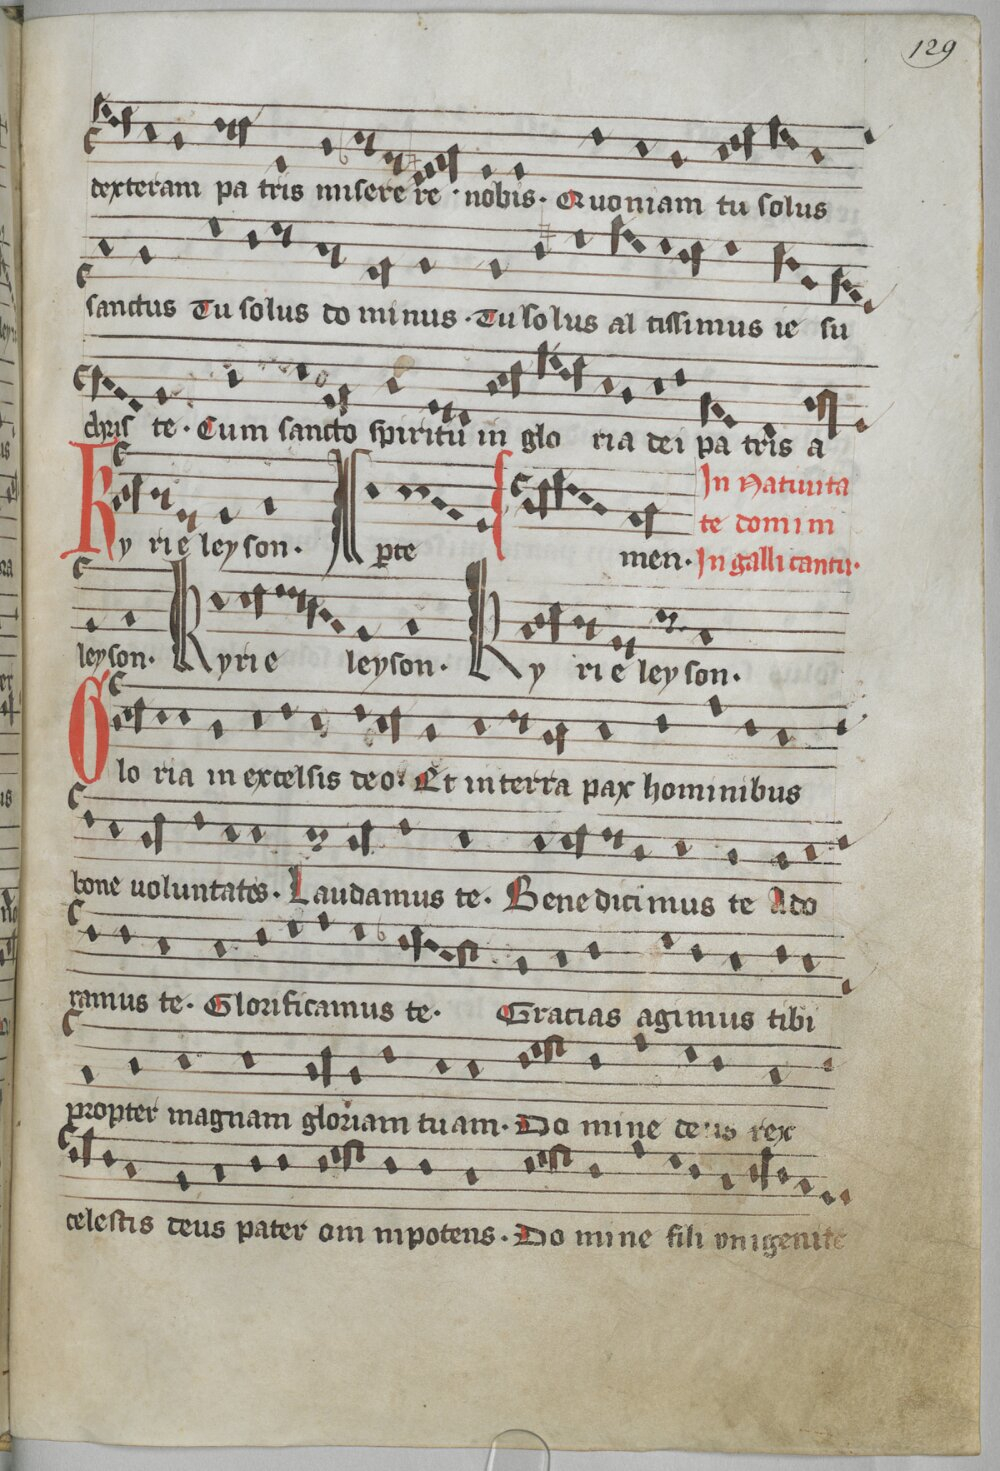 129
dexteram pa tris misere re · nobis · Quoniam tu solus
sanctus Tu solus do minus · Tu solus al tissimus ie su
chris te · Cum sancto spiritu in glo ria dei pa tris a
men · In Natiuita
te domini
In galli cantu ·
Ky rie ley son · Xpte
ley son · Kyrie leyson · Ky rie ley son ·
Glo ria in excelsis deo · Et in terra pax hominibus
bone uoluntates · Laudamus te · Bene dici mus te Ado
ramus te · Glorificamus te · Gracias agimus tibi
propter magnam gloriam tu am · Do mine deus rex
celestis deus pater om nipotens · Do mine fili vnigenite